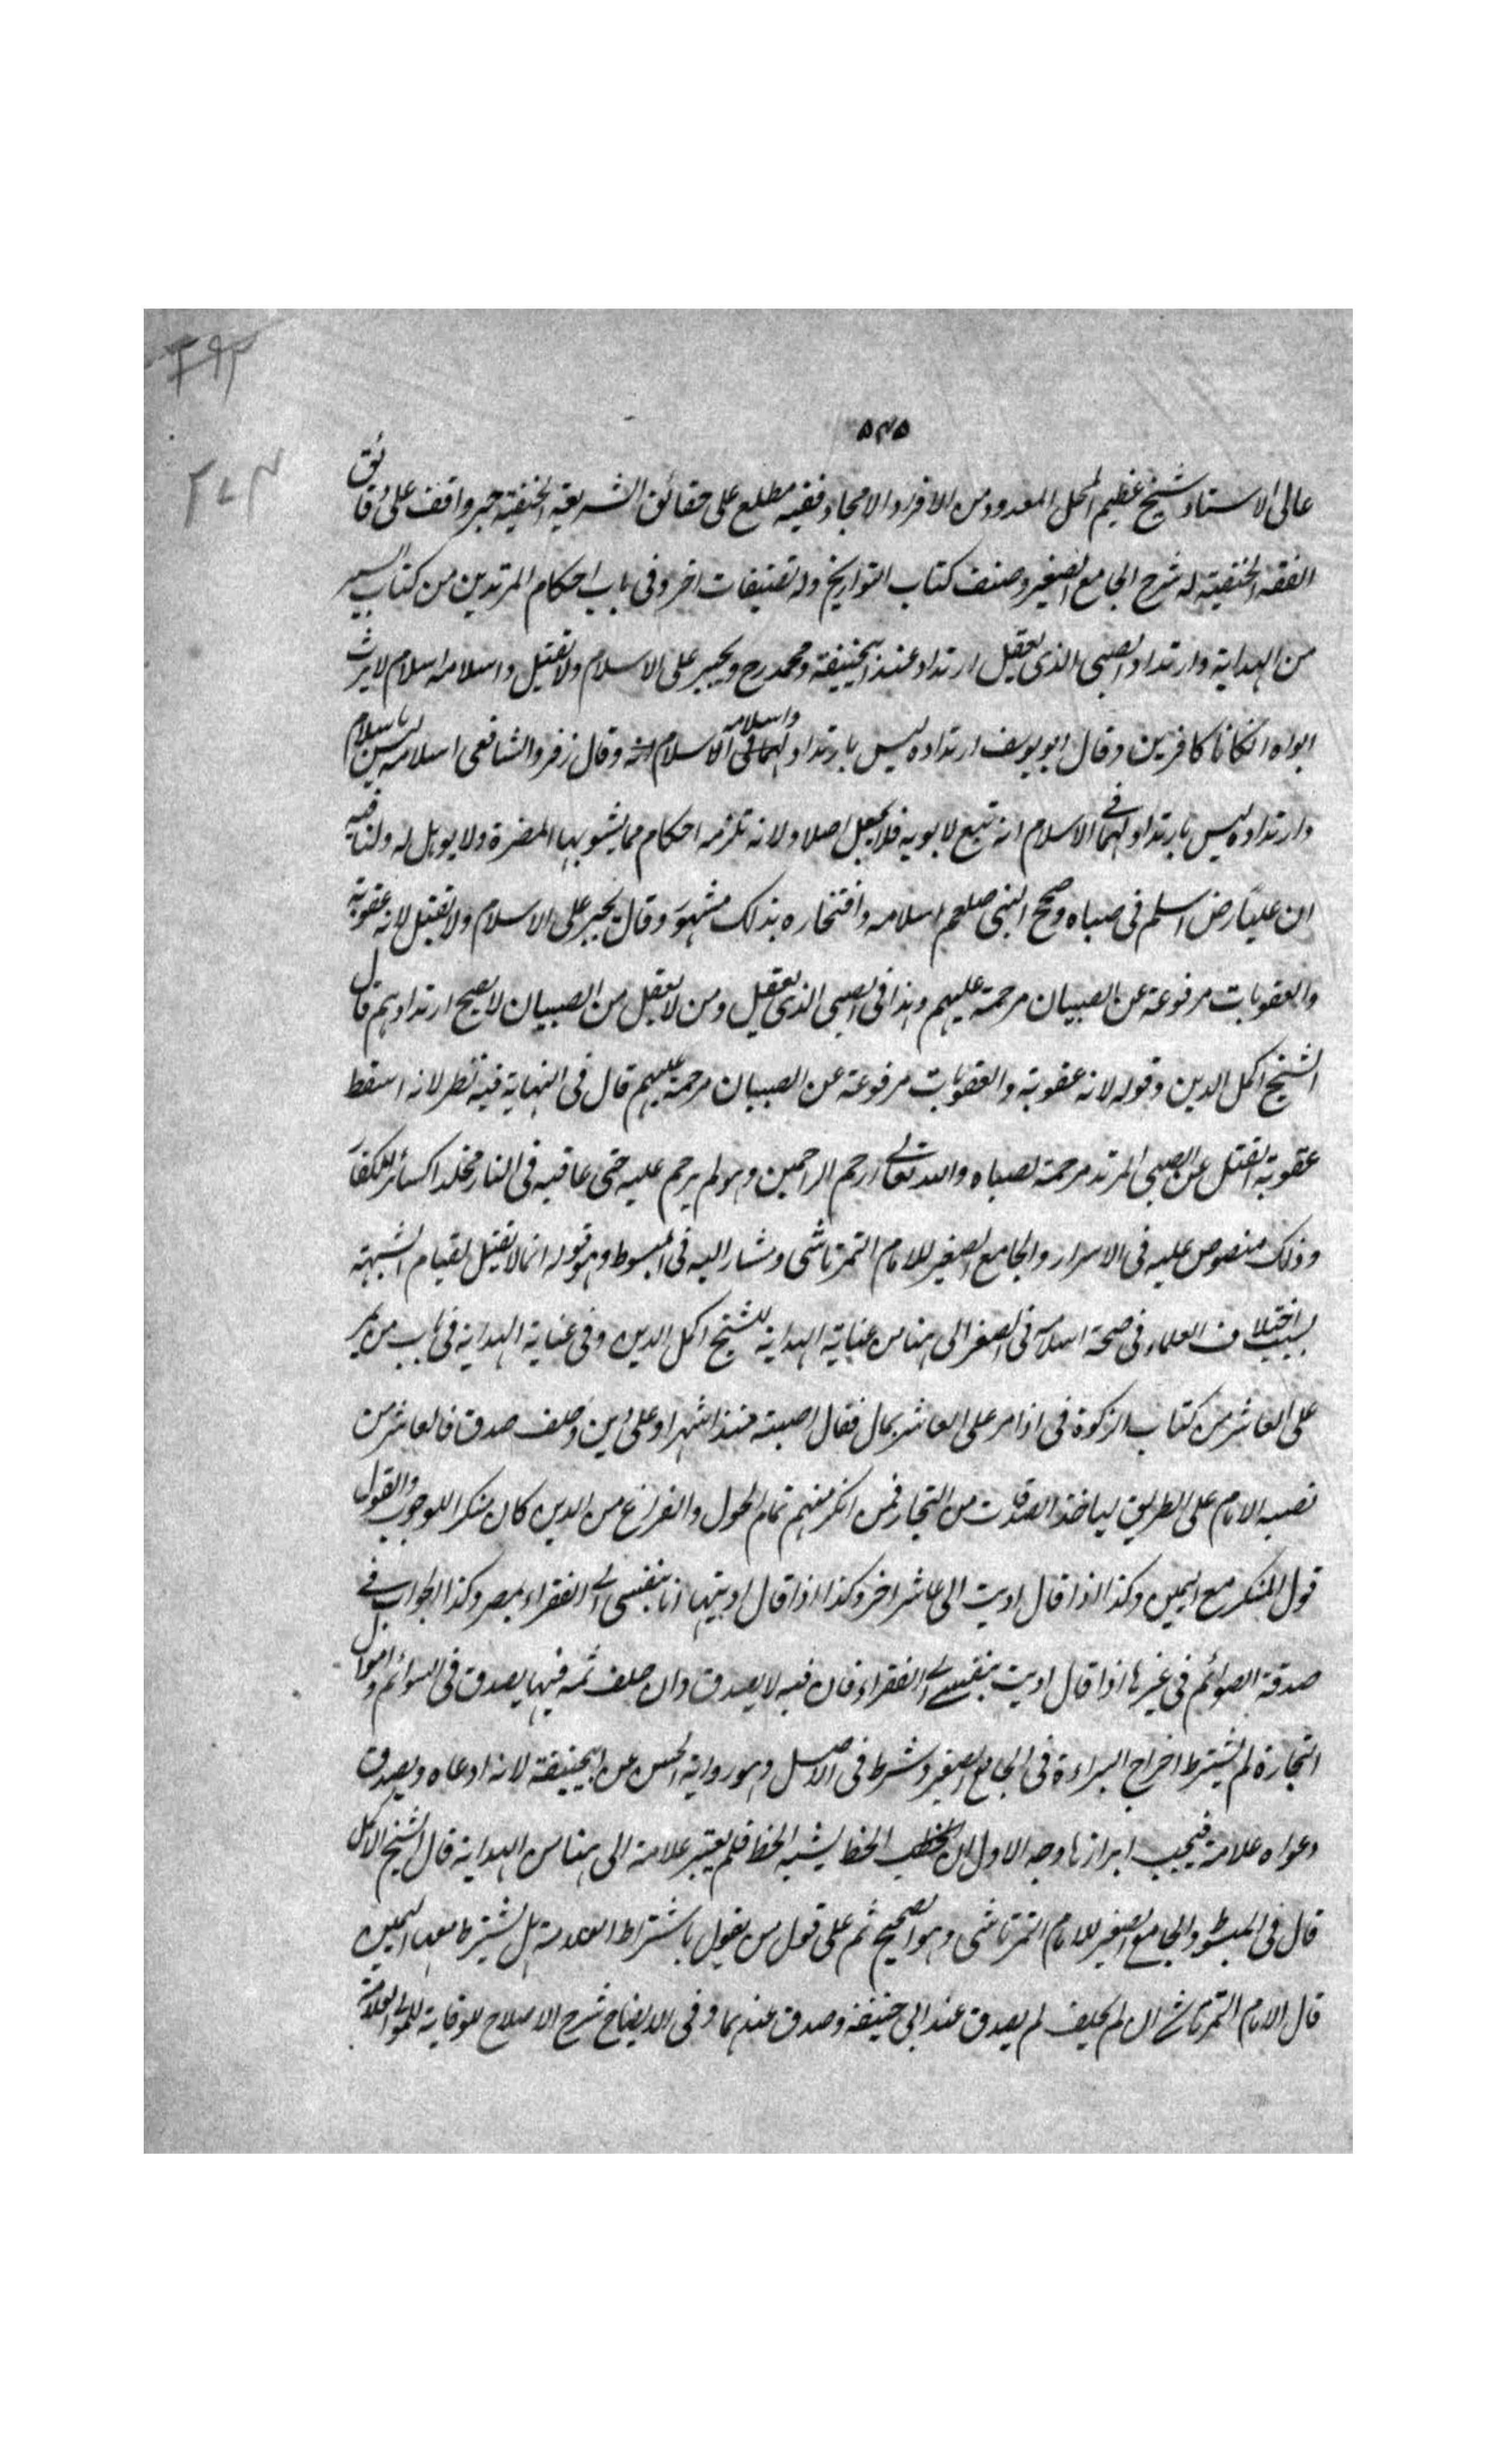 ٣٩٢
٥٣٥
٢٧٤
عالى الاستاد شيخ عظيم المحل المعدود من الافراد الامجاد فقيه مطلع على حقائق الشريعة الحنيفية حبر واقف على دقائق
الفقه الحنيفية له شرح الجامع الصغير وصنف كتاب التواريخ وله تصنيفات اخر وفى باب احكام المرتدين من كتاب السير
من الهداية وارتداد الصبى الذى يعقل ارتداد عند ابيحنيفة ومحمد رح ويجبر على الاسلام ولا يقتل واسلامه اسلام لا يرث
ابواه انكانا كافرين وقال ابو يوسف ارتداده ليس بارتداد واسلامه اسلام وقال زفر والشافعى اسلامه ليس باسلام
وارتداده ليس بارتداد لهما فى الاسلام انه تبع لابويه فلا يجعل اصلا ولانه تلزمه احكام مما يشوبها المضرة ولا يوهل له ولنا فيه
ان عليا رض اسلم فى صباه وصحح النبى صلعم اسلامه وافتخاره بذلك مشهور وقال يجبر على الاسلام ولا يقتل لانه عقوبة
والعقوبات مرفوعة عن الصبيان مرحمة عليهم وهذا فى الصبى الذى يعقل ومن لا يعقل من الصبيان لا يصح ارتدادهم قال
الشيخ اكمل الدين وقوله لانه عقوبة والعقوبات مرفوعة عن الصبيان مرحمة عليهم قال فى النهاية فيه نظر لانه اسقط
عقوبة القتل عن الصبى المرتد مرحمة لصباه والله تعالى ارحم الراحمين وهو لم يرحم عليه حتى عاقبه فى النار مخلدا كسائر الكفار
وذلك منصوص عليه فى الاسرار والجامع الصغير للامام التمرتاشى ومشار اليه فى المبسوط وهو قوله انما لا يقتل لقيام الشبهة
بسبب اختلاف العلماء فى صحة اسلامه فى الصغر الى هنا من عناية الهداية للشيخ اكمل الدين وفى عناية الهداية فى باب من يمر
على العاشر من كتاب الزكوة فى اذا مر على العاشر بمال فقال اصبته منذ اشهر او على دين وحلف صدق فالعاشر من
نصبه الامام على الطريق لياخذ الصدقات من التجار فمن انكر منهم تمام الحول والفراغ من الدين كان منكرا للوجوب والقول
قول المنكر مع اليمين وكذا اذا قال اديت الى عاشر اخر وكذا اذا قال اديتها انا بنفسى الى الفقراء بمصر وكذا الجواب فى
صدقة الصوائم فى غيرها اذا قال اديت بنفسى الى الفقراء فان فيه لا يصدق وان حلف ثمه فيها يصدق فى السوائم واموال
التجارة لم يشترط اخراج البراءة فى الجامع الصغير وشرط فى الاصل وهو رواية الحسن عن ابيحنيفة لانه ادعاه ويصدق
دعواه علامة فيجب ابرازها وجه الاول ان الخط يشبه الخط فلم يعتبر علامة الى هنا من الهداية قال الشيخ الاكمل
قال فى المبسوط والجامع الصغير للامام التمرتاشى وهو الصحيح ثم على قول من يقول باشتراط العلامة هل يشترط معها اليمين
قال الامام التمرتاشى ان لم يحلف لم يصدق عند ابى حنيفة وصدق عندهما وفى الايضاح شرح الاصلاح للوقاية للمولى العلامة